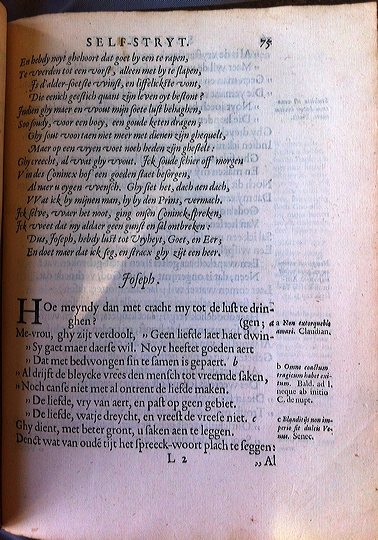 SELF-STRYT. 75
En hebdy noyt ghehoort dat goet by een te rapen,
Te worden tot een vorst, alleen met by te slapen,
Is d'alder-soetste winst, en liffelickste vont,
Die eenich geestich quant zijn leven oyt bestont?
Indien ghy maer en wout mijn soete lust behaghen,
Soo soudy, voor een boey, een goude keten draghen;
Ghy sout voortaen niet meer met dienen zijn ghequelt,
Maer op een vryen voet noch heden zijn ghestelt:
Ghy creecht, al wat ghy wout. Ick soude schier oft morgen
Van des Conincx hof een goeden staet besorgen,
Al naer u eygen wensch. Ghy siet het, dach aen dach,
Wat ick by mijnen man, by den Prins, vermach.
Ick selve, waer het noot, ging onsen Coninck spreken,
Ick weet dat my aldaer geen gunst en sal ontbreken:
Dus, Joseph, hebdy lust tot Vryheyt, Goet, en Eer;
En doet maer dat ick seg, en stracx ghy zijt een heer.
Joseph.
HOe meyndy dan met cracht my tot de lust te drin-
ghen? (gen; a
Me-vrou, ghy zijt verdoolt, „Geen liefde laet haer dwin-
„Sy gaet maer daerse wil. Noyt heeftet goeden aert
„Dat met bedwongen sin te samen is gepaert. b
„Al drijft de bleycke vrees den mensch tot vreemde saken,
„Noch canse niet met al ontrent de liefde maken.
„De liefde, vry van aert, en past op geen gebiet.
„De liefde, watje dreycht, en vreest de vreese niet. c
Ghy dient, met beter gront, u saken aen te leggen.
Denckt wat van oude tijt het spreeck-woort plach te seggen:
L 2 „Al
a Non extorquebis
amari. Claudian.
b Omne coactum
tragicum habet exi-
tum. Bald. ad l.
neque ab initio
C. de nupt.
c Blanditijs non im-
perio fit dulcis Ve-
nus. Senec.